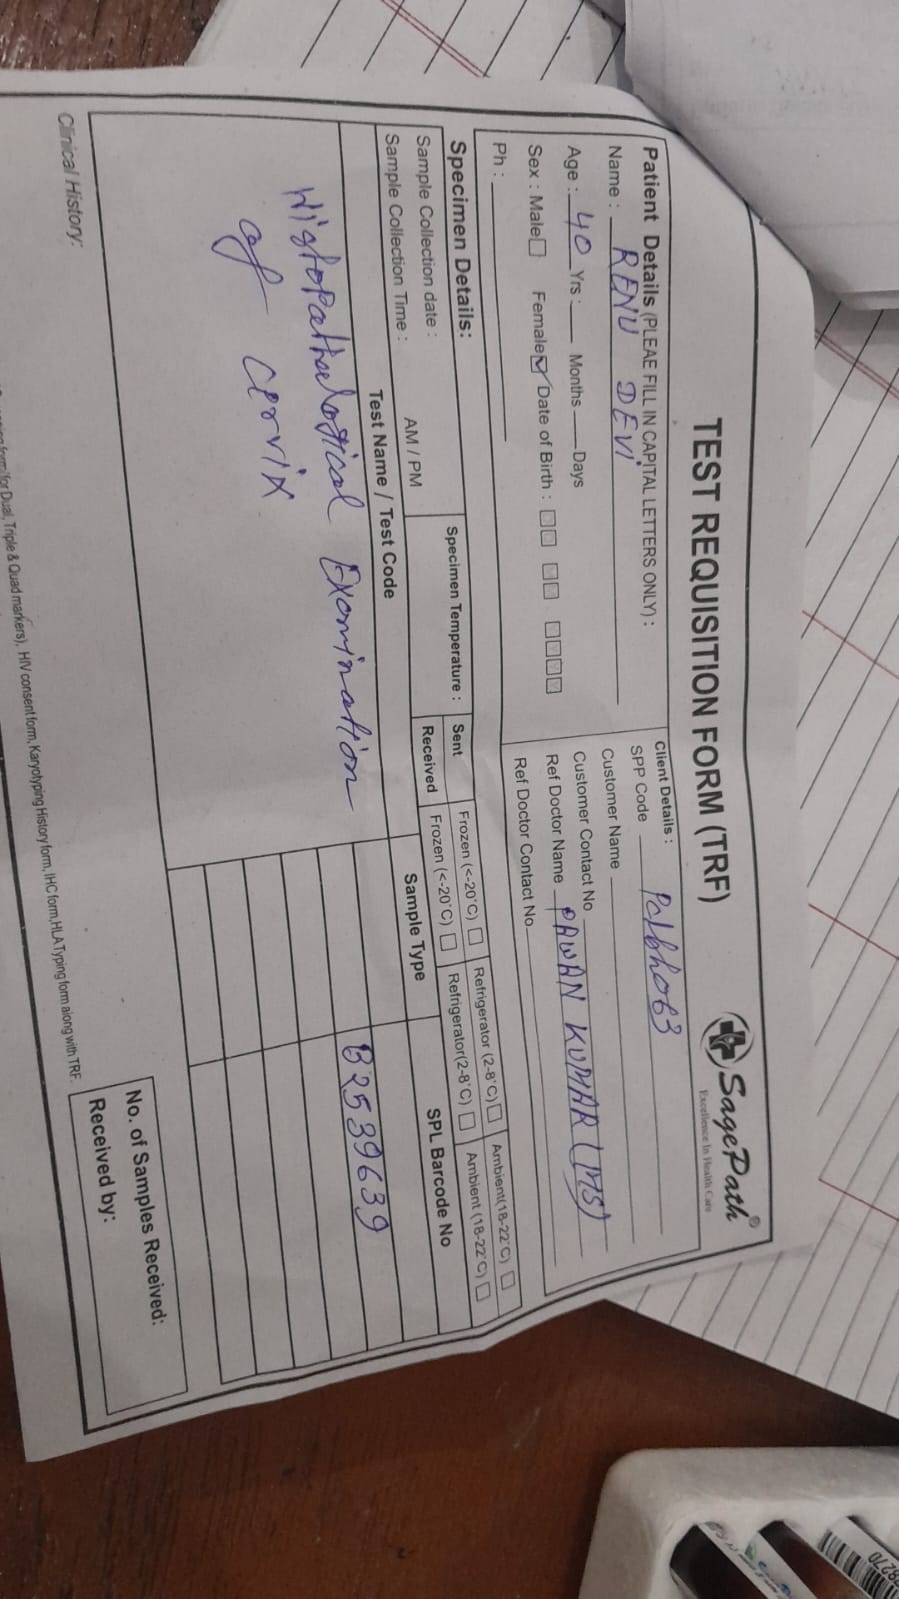 TEST REQUISITION FORM (TRF)
SagePath®
Excellence In Health Care
Patient Details (PLEAE FILL IN CAPITAL LETTERS ONLY) :
Name : RENU DEVI
Age : 40 Yrs : Months Days
Sex : Male Female Date of Birth :
Ph :
Client Details :
SPP Code
Customer Name
Customer Contact No
Ref Doctor Name PAWAN KUMAR (MS)
Ref Doctor Contact No
Specimen Details:
Sample Collection date :
Sample Collection Time : AM / PM
Specimen Temperature :
Sent Frozen (<-20°C) Refrigerator (2-8°C) Ambient(18-22°C)
Received Frozen (<-20°C) Refrigerator(2-8°C) Ambient (18-22°C)
Test Name / Test Code Sample Type SPL Barcode No
Histopathological Examination B2539639
of Cervix
Clinical History:
No. of Samples Received:
Received by:
form for Dual, Triple & Quad markers), HIV consent form, Karyotyping History form, IHC form,HLA Typing form along with TRF.